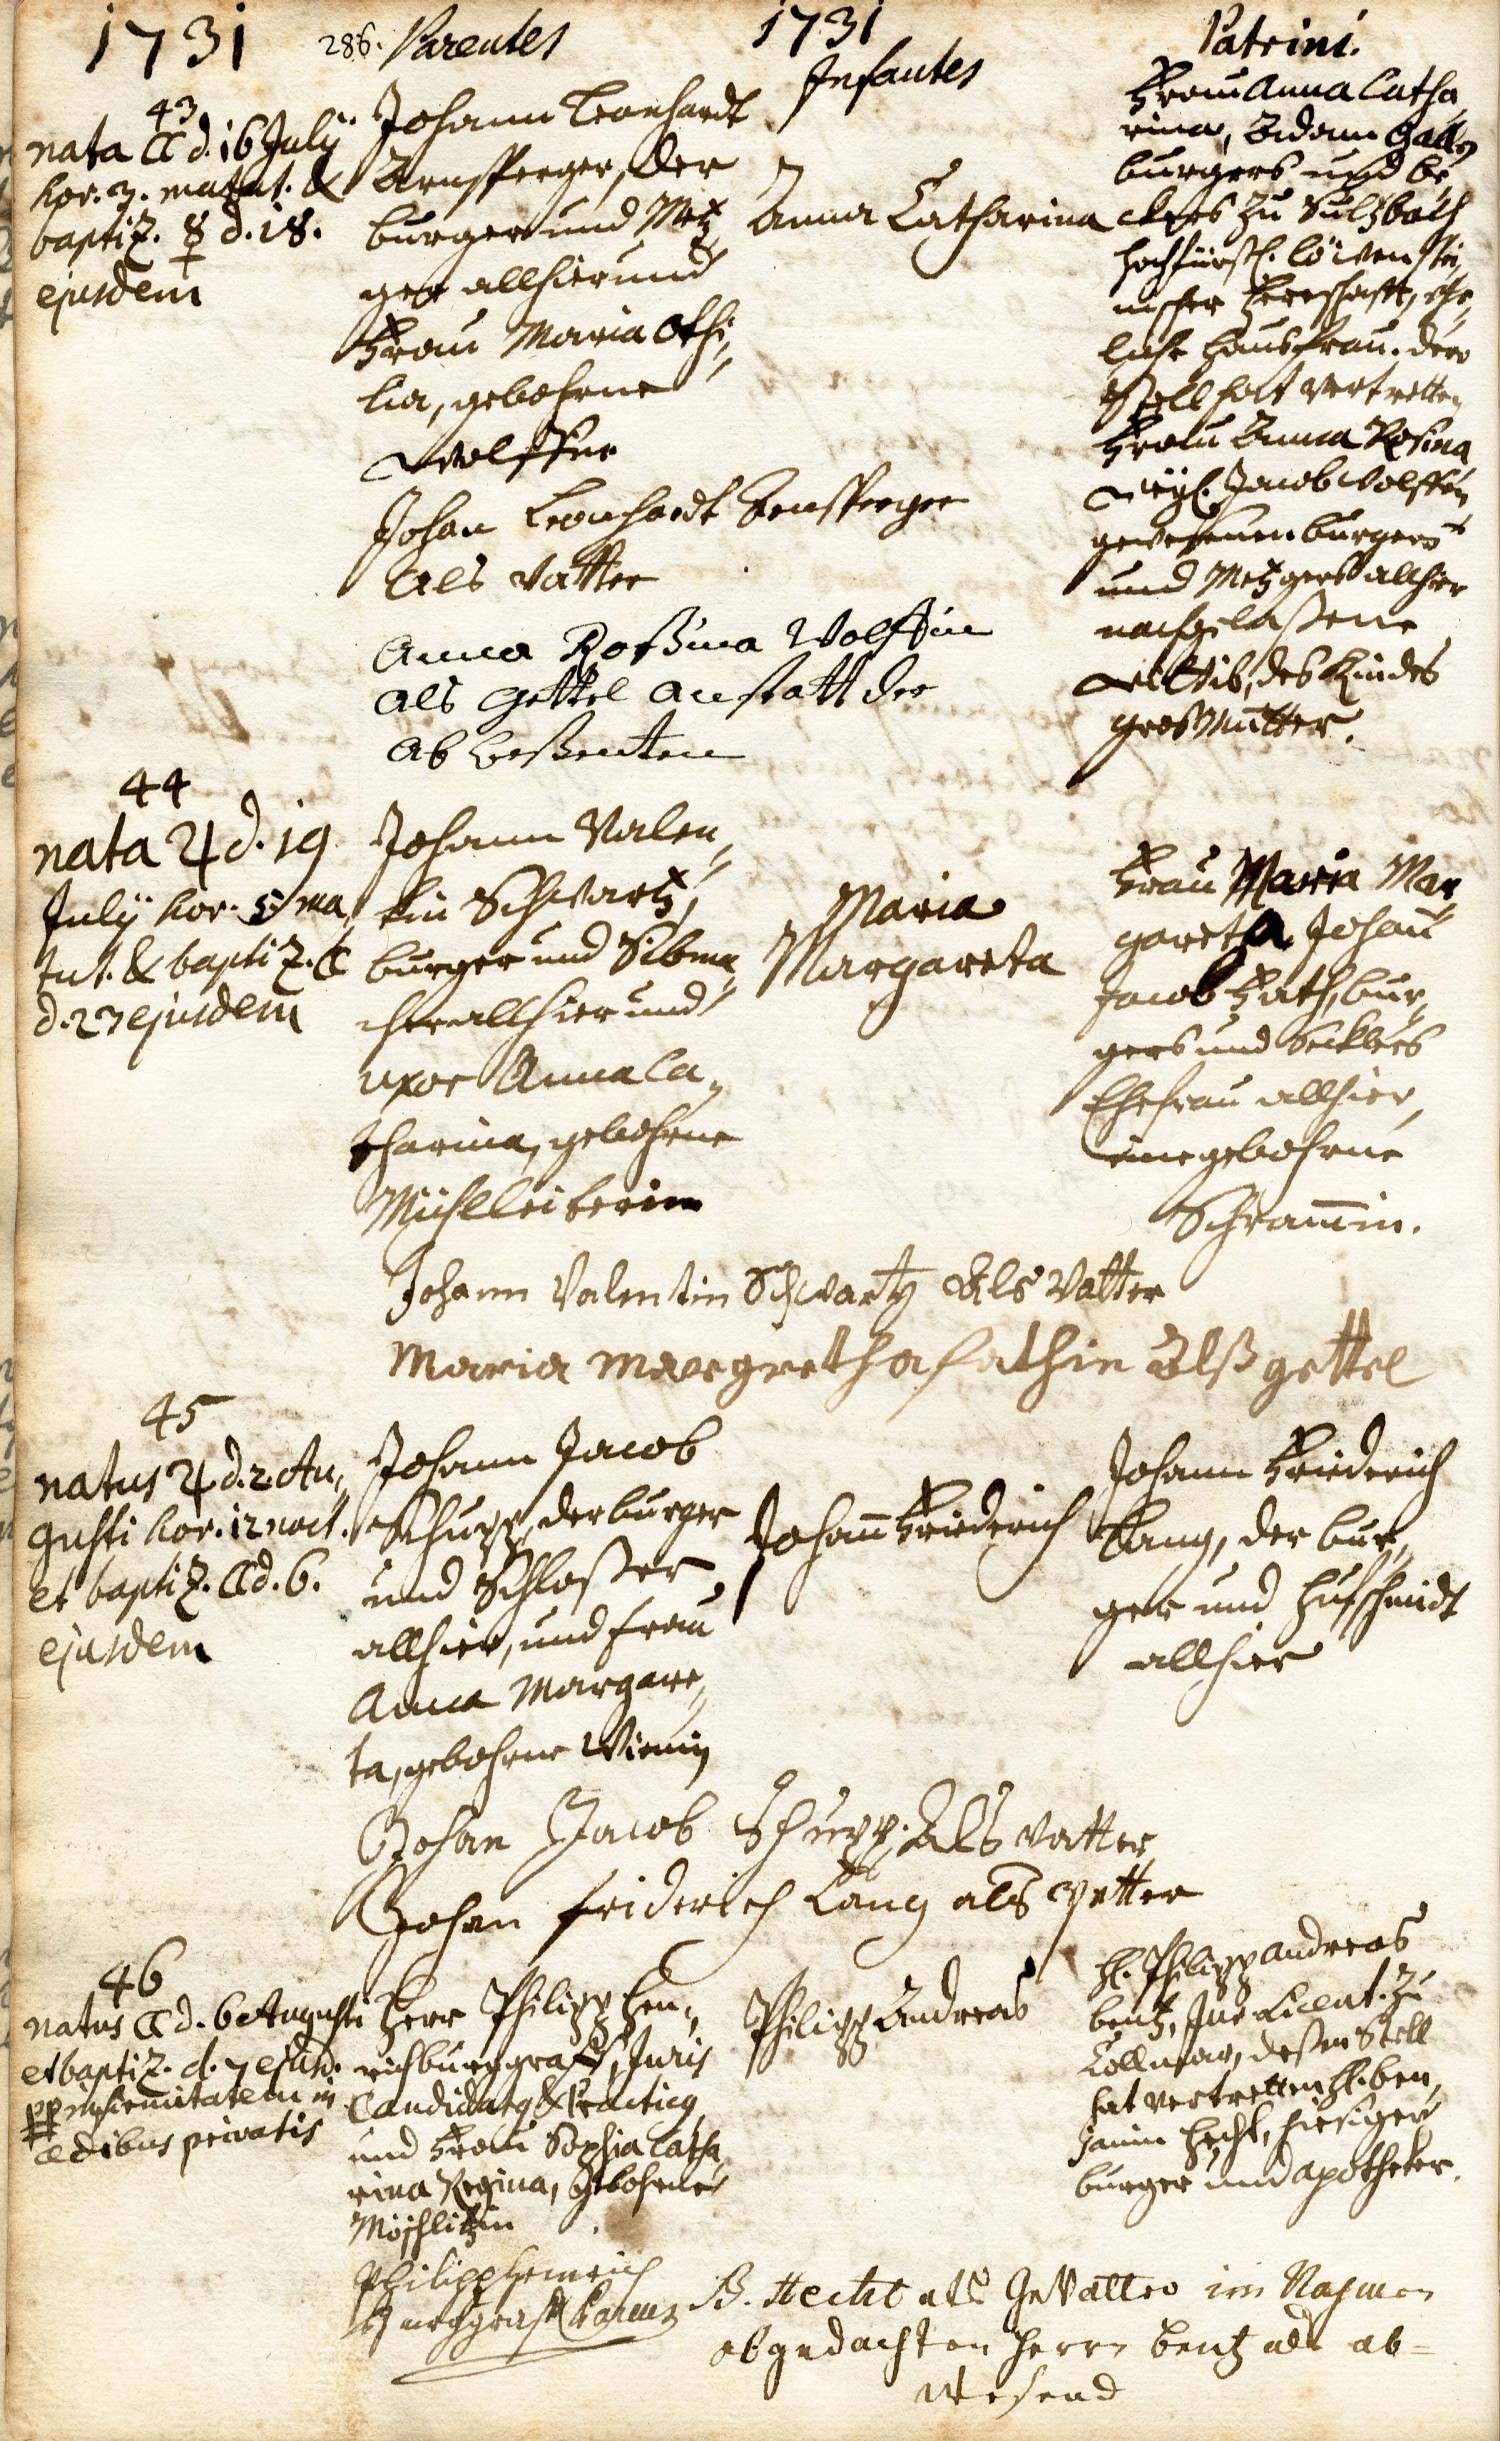 1731
286. Parentes
1731
Infantes
Patrini.
43
nata ☾ d. 16 July
hor. 3. matut. &
baptiz. ☿ d. 18.
ejusdem
Johann Leonhardt
Arnsperger, der
burger und Metz„
ger allhier und
Frau Maria Othi„
lia, gebohrne
Wolffin
Anna Catharina
Frau Anna Catha„
rina, Adam Gall
burgers und be„
ckers zu Sultzbach
hochfürstl. löwenstei„
nischer Herrschafft, ehe„
liche haußfrau. dero
Stell hat vertretten
Frau Anna Rosina
Weyl. Jacob Wolffen
gewesenen burgers
und Metzgers allhier
nachgelaßene
Wittib, des Kindes
großmutter.
Johan Leonhardt Arnsperger
Als Vatter
Anna Roßina Wolffin
als gettel anstatt der
ab weßenten
44
nata ♃ d. 19
July hor. 5 ma„
tut. & baptiz. ☾
d. 23 ejusdem
Johann Valen„
tin Schwartz,
burger und Sibma„
cher allhier und
uxor Anna Ca„
tharina, gebohrne
Mühlleiterin
Maria
Margareta
Frau Maria Mar„
gareta Johann
Jacob Fath, bur„
gers und Secklers
Ehefrau allhier,
eine gebohrne
Schram̄in.
Johann Valentin Schwartz Als Vatter
Maria Margretha fathin Alß gettel
45
natus ♃ d. 2 Au„
gusti hor. 12 noct.
et baptiz. ☾ d. 6.
ejusdem
Johann Jacob
Schupp, der burger
und Schloßer
allhier, und frau
Anna Margare„
ta, gebohrne
Johann Friederich
Johann Friederich
Lang, der bur„
ger und Hufschmidt
allhier
Johan Jacob Schupp Als vatter
Johan friderich Lang als petter
46
natus ☾ d. 6 Augusti
et baptiz. d. 7 ejusd.
pp infirmitatem in
ædibus privatis
Herr Philipp Hen„
rich burggraff, Juris
Candidatq & Practicq
und Frau Sophia Catha„
rina Regina, gebohrne
Möschlitzin
Philipp Andreas
H. Philipp Andreas
bentz, Jur. Licent. zu
Collmar, deßen Stell
hat vertretten H. Ben„
jamin Hecht, hiesiger
burger und apotheker.
Philipp Heinrich
Burggraff
B. Hecht als Gevatter im Nahmen
obgedachten Herrn Bentz als ab=
wesend